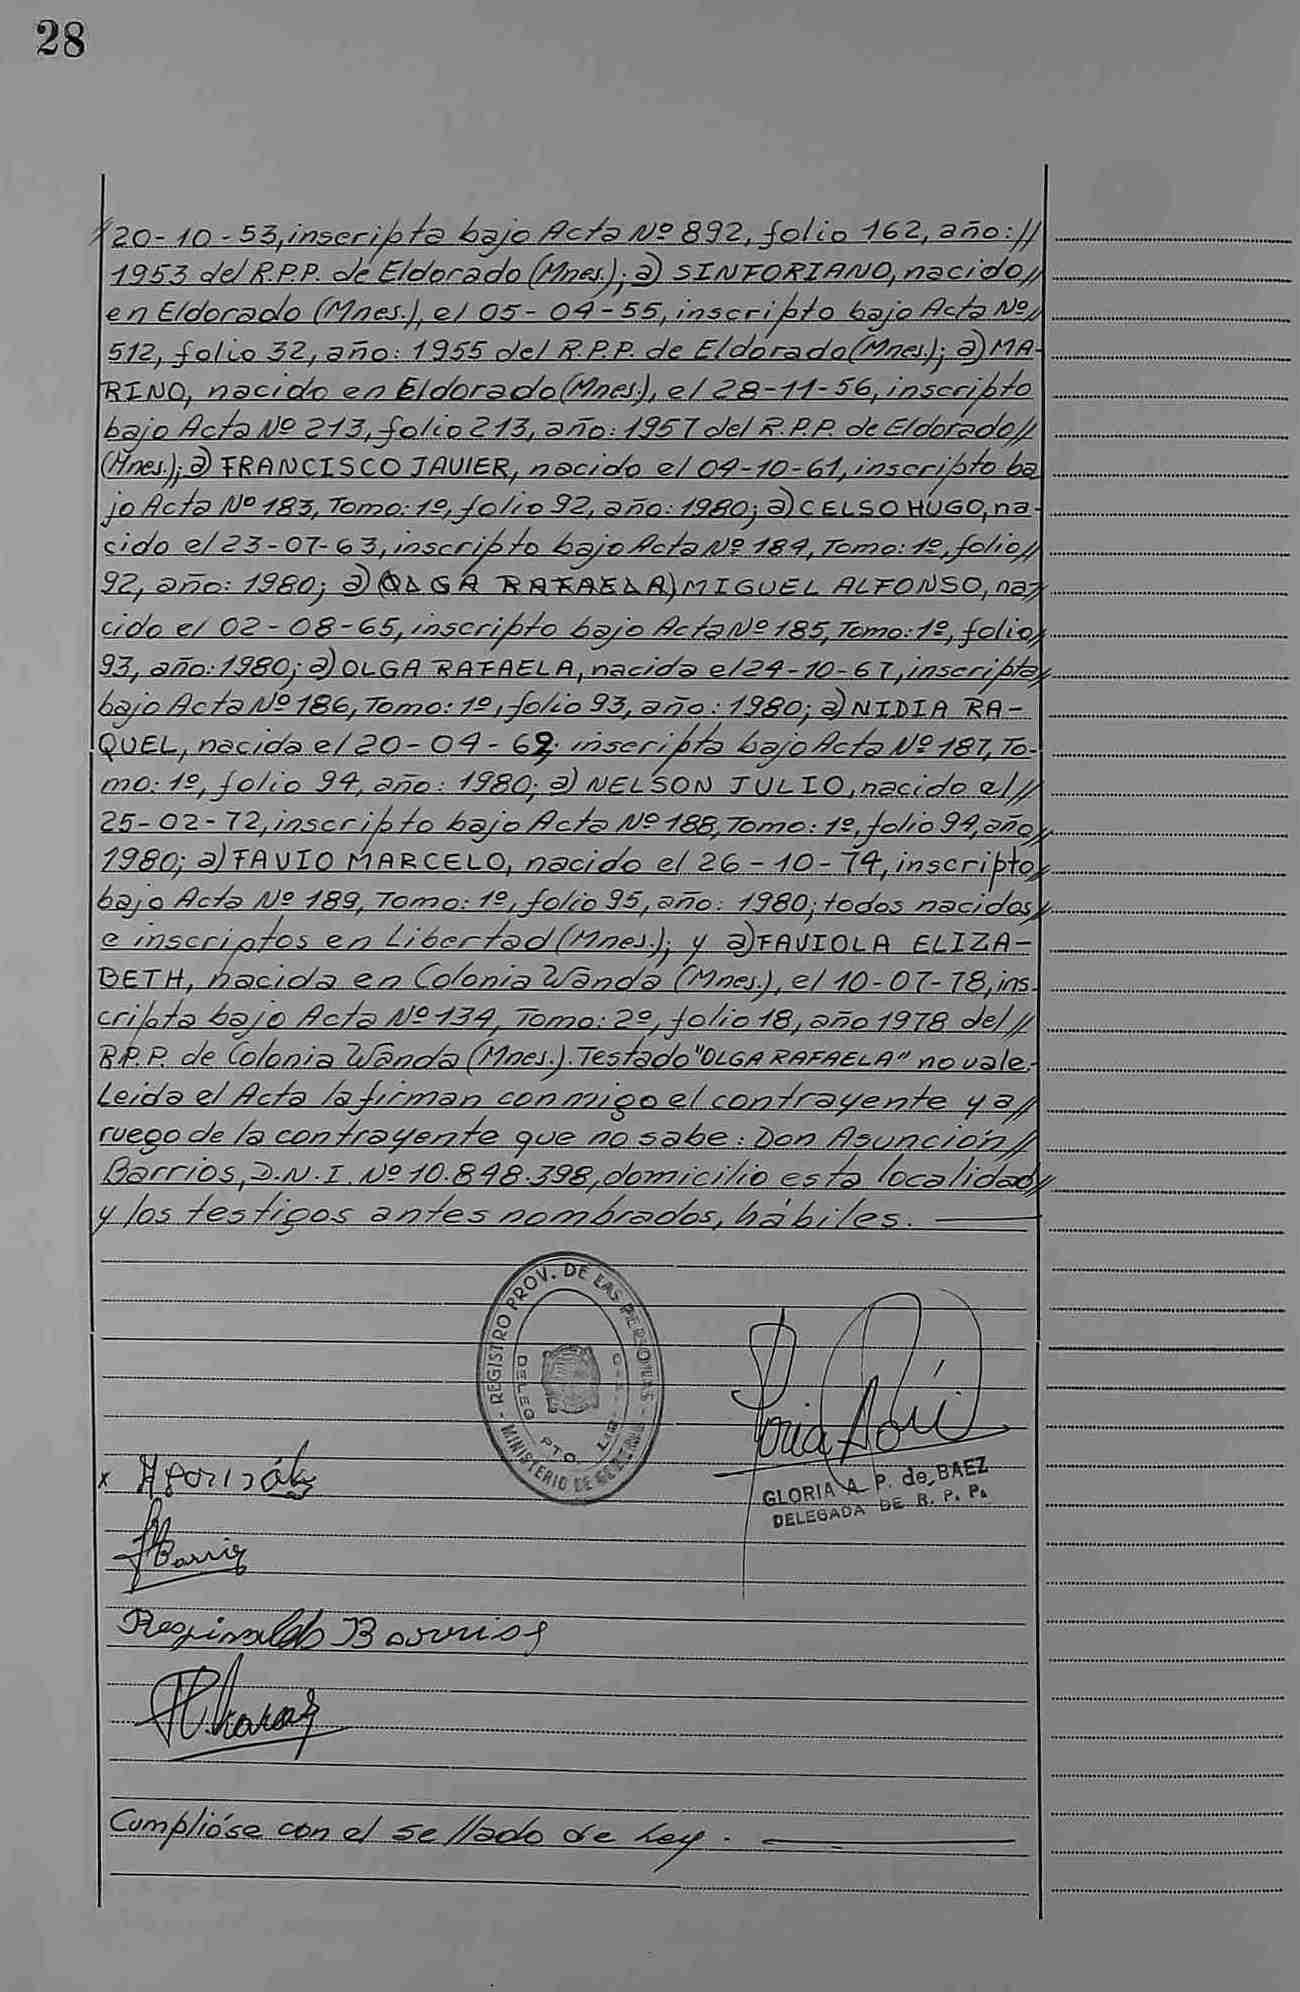 28
// 20-10-53, inscripta bajo Acta Nº 892, folio 162, año: //
1953 del R.P.P. de Eldorado (Mnes.); a) SINFORIANO, nacido //
en Eldorado (Mnes.), el 05-04-55, inscripto bajo Acta Nº //
512, folio 32, año: 1955 del R.P.P. de Eldorado (Mnes.); a) MA-
RINO, nacido en Eldorado (Mnes.), el 28-11-56, inscripto
bajo Acta Nº 213, folio 213, año: 1957 del R.P.P. de Eldorado //
(Mnes.); a) FRANCISCO JAVIER, nacido el 04-10-61, inscripto ba
jo Acta Nº 183, Tomo: 1º, folio 92, año: 1980; a) CELSO HUGO, na-
cido el 23-07-63, inscripto bajo Acta Nº 184, Tomo: 1º, folio //
92, año: 1980; a) (OLGA RAFAELA) MIGUEL ALFONSO, na-
cido el 02-08-65, inscripto bajo Acta Nº 185, Tomo: 1º, folio //
93, año: 1980; a) OLGA RAFAELA, nacida el 24-10-67, inscripta //
bajo Acta Nº 186, Tomo: 1º, folio 93, año: 1980; a) NIDIA RA-
QUEL, nacida el 20-04-69, inscripta bajo Acta Nº 187, To-
mo: 1º, folio 94, año: 1980; a) NELSON JULIO, nacido el //
25-02-72, inscripto bajo Acta Nº 188, Tomo: 1º, folio 94, año //
1980; a) FAVIO MARCELO, nacido el 26-10-74, inscripto //
bajo Acta Nº 189, Tomo: 1º, folio 95, año: 1980; todos nacidos //
e inscriptos en Libertad (Mnes.); y a) FAVIOLA ELIZA-
BETH, nacida en Colonia Wanda (Mnes.), el 10-07-78, ins-
cripta bajo Acta Nº 134, Tomo: 2º, folio 18, año 1978 del //
R.P.P. de Colonia Wanda (Mnes.). Testado "OLGA RAFAELA" no vale.-
Leida el Acta la firman conmigo el contrayente y a //
ruego de la contrayente que no sabe: Don Asunción //
Barrios, D.N.I. Nº 10.848.398, domicilio esta localidad //
y los testigos antes nombrados, hábiles.
- REGISTRO PROV. DE LAS PERSONAS -
MINISTERIO DE GOBIERNO
DELEG
PTO. LIB
GLORIA A. P. de BAEZ
DELEGADA DE R. P. P.
x
Barrio
Reginaldo Barrios
Cumplióse con el sellado de Ley.